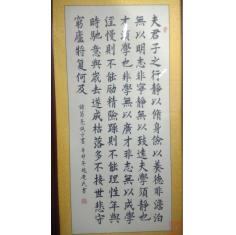 夫君子之行靜以脩身儉以養德非澹泊
無以明志非寧靜無以致遠夫學須靜也
才須學也非學無以廣才非志無以成學
淫慢則不能勵精險躁則不能理性年與
時馳意與歲去遂成枯落多不接世悲守
窮廬將復何及 諸葛亮誡子書